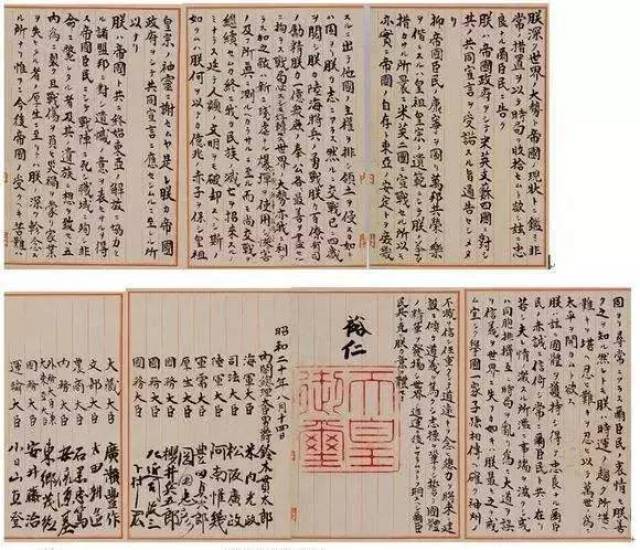 朕深ク世界ノ大勢ト帝國ノ現狀トニ鑑ミ非
常ノ措置ヲ以テ時局ヲ收拾セムト欲シ茲ニ忠
良ナル爾臣民ニ告ク
朕ハ帝國政府ヲシテ米英支蘇四國ニ對シ
其ノ共同宣言ヲ受諾スル旨通告セシメタ
リ
抑帝國臣民ノ康寧ヲ圖リ萬邦共榮ノ樂
ヲ偕ニスルハ皇祖皇宗ノ遺範ニシテ朕ノ拳々
措カサル所曩ニ米英二國ニ宣戰セル所以モ
亦實ニ帝國ノ自存ト東亞ノ安定トヲ庶幾
スルニ出テ他國ノ主權ヲ排シ領土ヲ侵スカ如
キハ固ヨリ朕カ志ニアラス然ルニ交戰已ニ四歲
ヲ閲シ朕カ陸海將兵ノ勇戰朕カ百僚有司
ノ勵精朕カ一億衆庶ノ奉公各最善ヲ盡セルニ
拘ラス戰局必スシモ好轉セス世界ノ大勢亦我ニ利ア
ラス加之敵ハ新ニ殘虐ナル爆彈ヲ使用シテ慘害
ノ及フ所眞ニ測ルヘカラサルニ至ル而モ尚交戰ヲ
繼續セムカ終ニ我カ民族ノ滅亡ヲ招來スルノ
ミナラス延テ人類ノ文明ヲモ破却スヘシ斯ノ
如クムハ朕何ヲ以テカ億兆ノ赤子ヲ保シ皇祖
皇宗ノ神靈ニ謝セムヤ是レ朕カ帝國
政府ヲシテ共同宣言ニ應セシムルニ至レル所
以ナリ
朕ハ帝國ト共ニ終始東亞ノ解放ニ協力セ
ル諸盟邦ニ對シ遺憾ノ意ヲ表セサルヲ得
ス帝國臣民ニシテ戰陣ニ死シ職域ニ殉シ非
命ニ斃レタル者及其ノ遺族ニ想ヲ致セハ五
內爲ニ裂ク且戰傷ヲ負ヒ災禍ヲ蒙リ家業
ヲ失ヒタル者ノ厚生ニ至リテハ朕ノ深ク軫念ス
ル所ナリ惟フニ今後帝國ノ受クヘキ苦難ハ
固ヨリ尋常ニアラス爾臣民ノ衷情モ朕善
ク之ヲ知ル然レトモ朕ハ時運ノ趨ク所堪ヘ
難キヲ堪ヘ忍ヒ難キヲ忍ヒ以テ萬世ノ爲ニ
太平ヲ開カムト欲ス
朕ハ茲ニ國體ヲ護持シ得テ忠良ナル爾臣
民ノ赤誠ニ信倚シ常ニ爾臣民ト共ニ在リ
若シ夫レ情ノ激スル所濫ニ事端ヲ滋クシ或
ハ同胞排擠互ニ時局ヲ亂リ爲ニ大道ヲ誤
リ信義ヲ世界ニ失フカ如キハ朕最モ之ヲ戒
ム宜シク擧國一家子孫相傳ヘ確ク神州ノ
不滅ヲ信シ任重クシテ道遠キヲ念ヒ總力ヲ將來ノ建
設ニ傾ケ道義ヲ篤クシ志操ヲ鞏クシ誓テ國體
ノ精華ヲ發揚シ世界ノ進運ニ後レサラムコトヲ期スヘシ爾臣
民其レ克ク朕カ意ヲ體セヨ
裕仁
天皇
御璽
昭和二十年八月十四日
內閣總理大臣男爵 鈴木貫太郎
海軍大臣 米内光政
司法大臣 松阪廣政
陸軍大臣 阿南惟幾
軍需大臣 豐田貞次郎
厚生大臣 岡田忠彦
國務大臣 櫻井兵五郎
國務大臣 左近司政三
國務大臣 下村宏
大藏大臣 廣瀬豐作
文部大臣 太田耕造
農商大臣 石黒忠篤
內務大臣 安倍源基
外務大臣兼大東亞大臣 東郷茂徳
國務大臣 安井藤治
運輸大臣 小日山直登